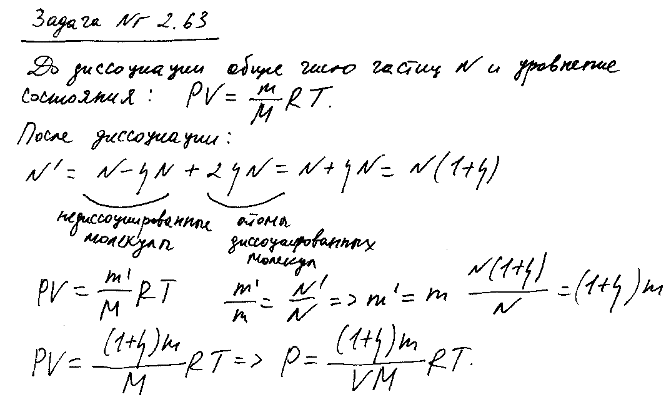 Задача № 2.63
До диссоциации общее число частиц N и уравнение
состояния: PV = m/M RT.
После диссоциации:
N' = N - ηN + 2ηN = N + ηN = N(1+η)
недиссоциированные молекулы
атомы диссоциированных молекул
PV = m'/M RT m'/m = N'/N => m' = m N(1+η)/N = (1+η)m
PV = (1+η)m/M RT => P = (1+η)m/VM RT.